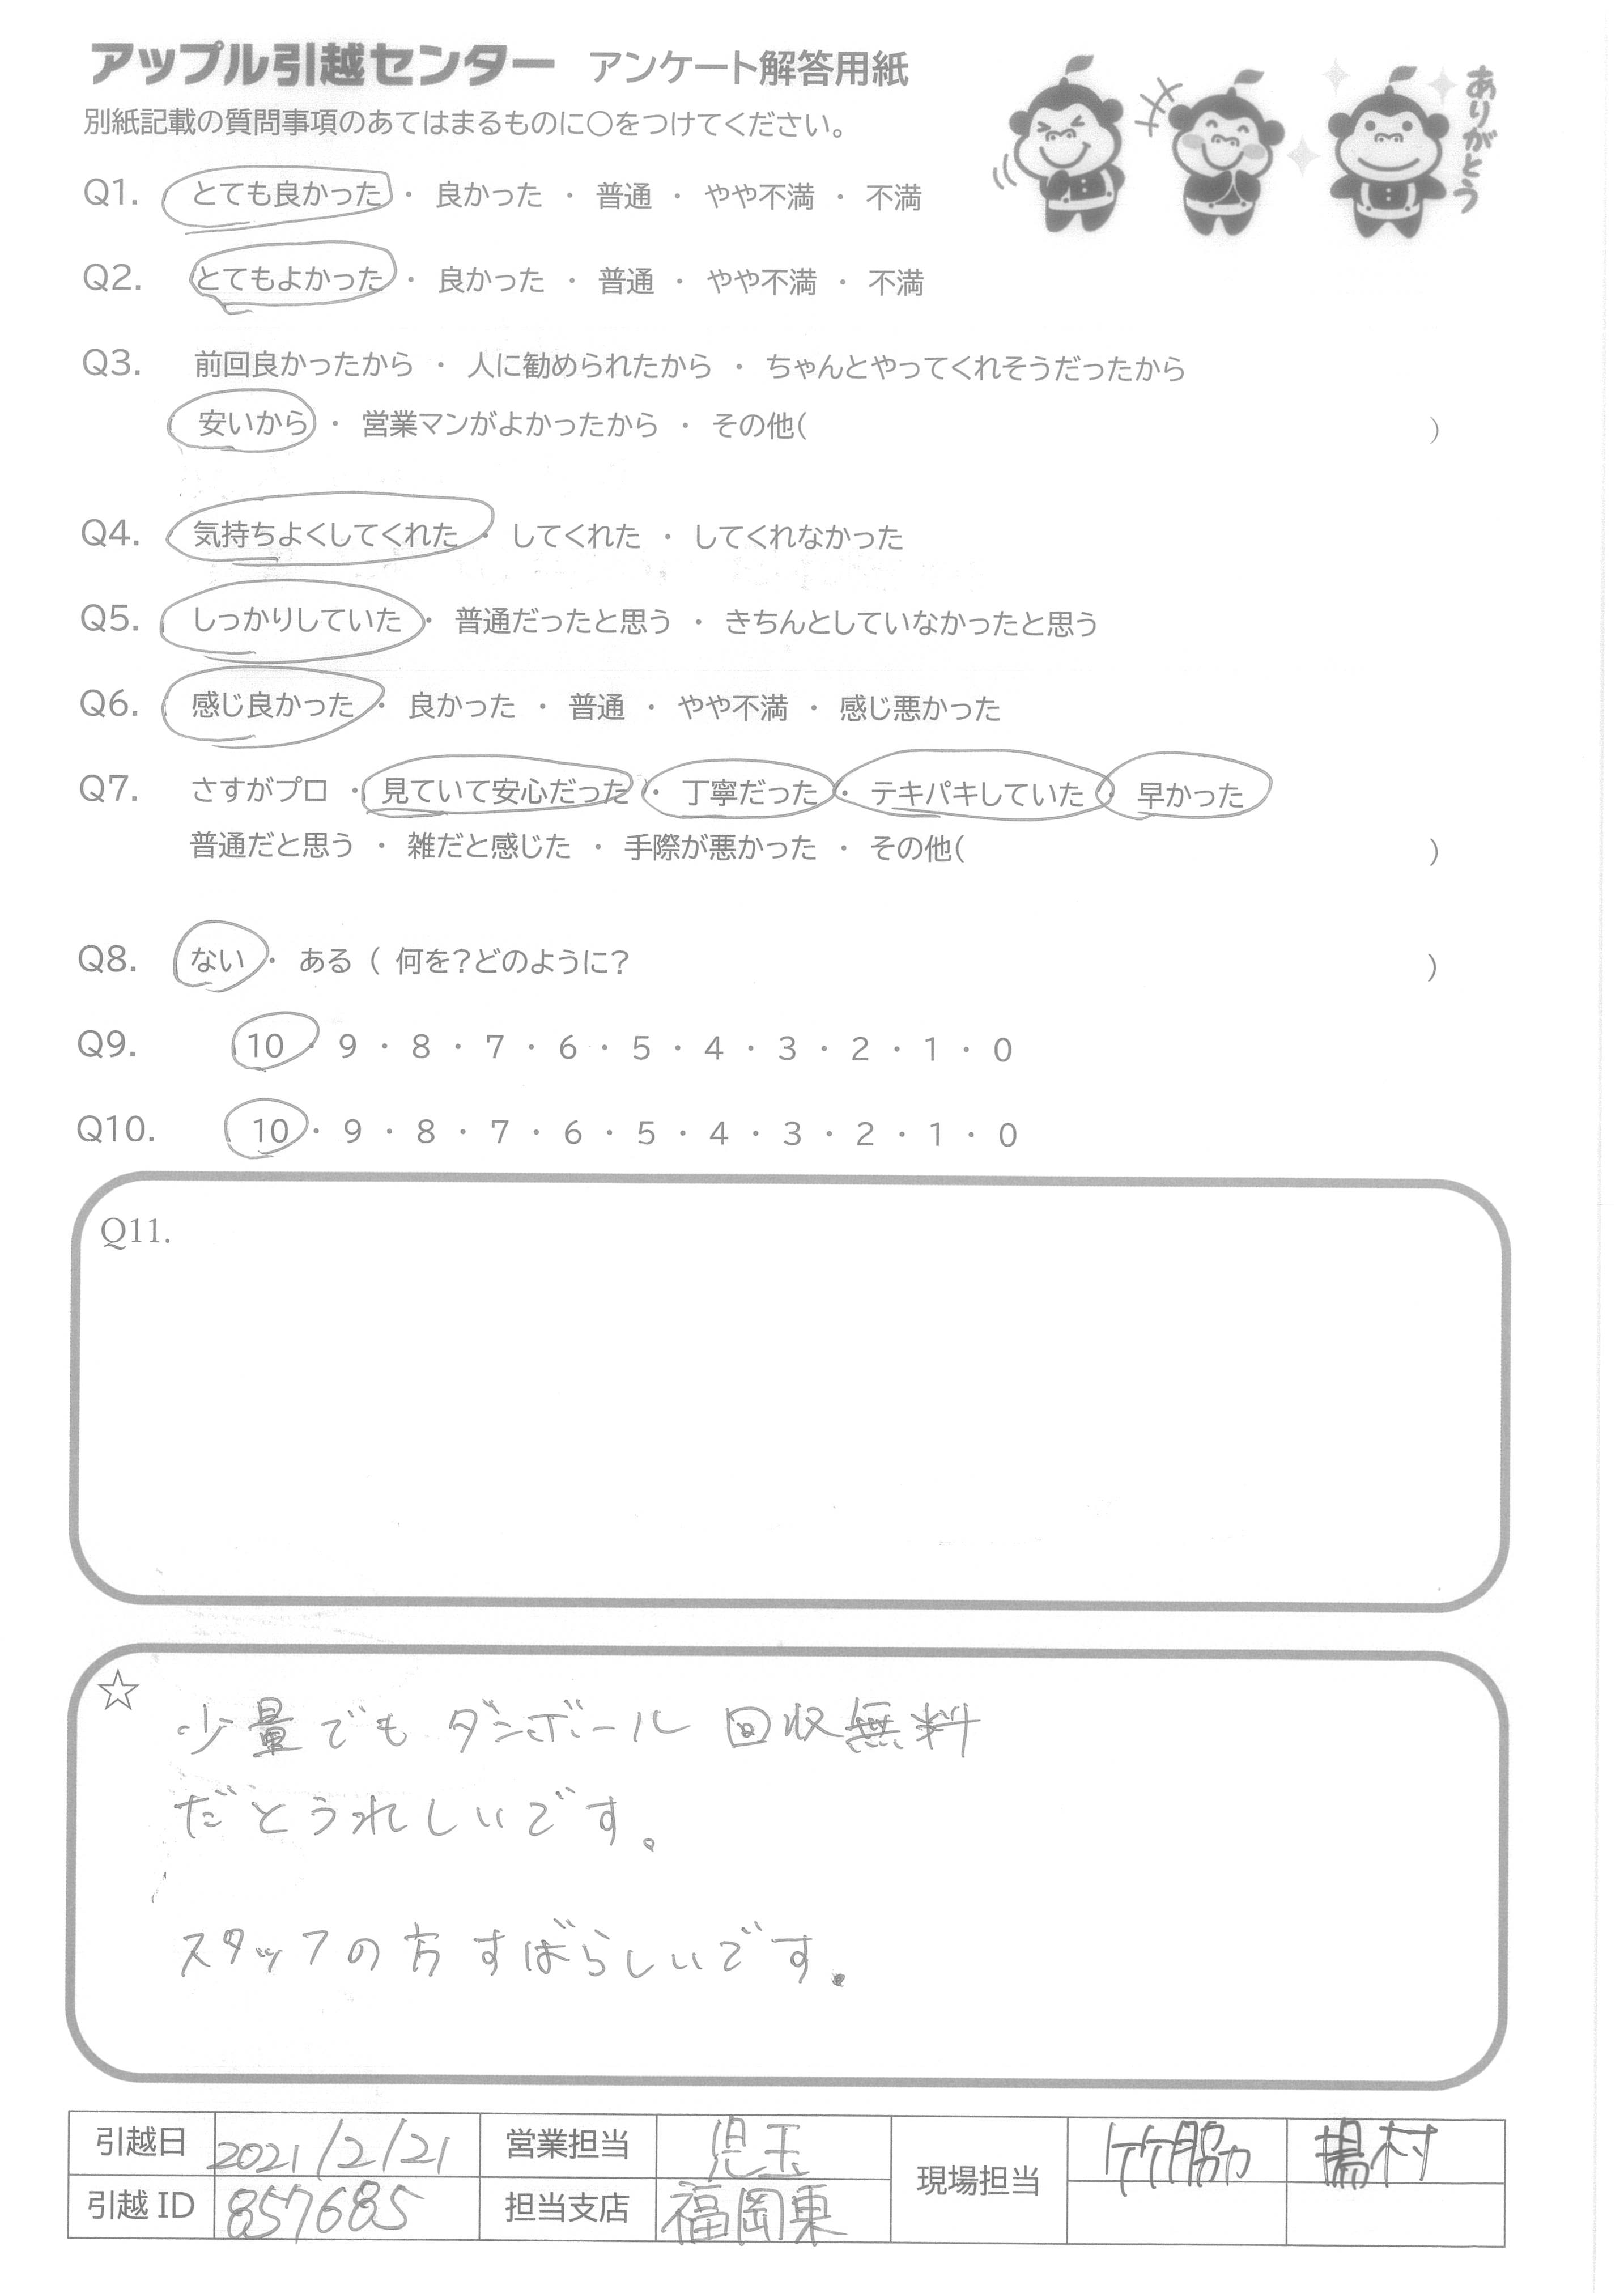 アップル引越センター アンケート解答用紙
ありがとう
別紙記載の質問事項のあてはまるものに○をつけてください。
Q1. とても良かった ・ 良かった ・ 普通 ・ やや不満 ・ 不満
Q2. とてもよかった ・ 良かった ・ 普通 ・ やや不満 ・ 不満
Q3. 前回良かったから ・ 人に勧められたから ・ ちゃんとやってくれそうだったから
安いから ・ 営業マンがよかったから ・ その他( )
Q4. 気持ちよくしてくれた ・ してくれた ・ してくれなかった
Q5. しっかりしていた ・ 普通だったと思う ・ きちんとしていなかったと思う
Q6. 感じ良かった ・ 良かった ・ 普通 ・ やや不満 ・ 感じ悪かった
Q7. さすがプロ ・ 見ていて安心だった ・ 丁寧だった ・ テキパキしていた ・ 早かった
普通だと思う ・ 雑だと感じた ・ 手際が悪かった ・ その他( )
Q8. ない ・ ある ( 何を?どのように? )
Q9. 10 ・ 9 ・ 8 ・ 7 ・ 6 ・ 5 ・ 4 ・ 3 ・ 2 ・ 1 ・ 0
Q10. 10 ・ 9 ・ 8 ・ 7 ・ 6 ・ 5 ・ 4 ・ 3 ・ 2 ・ 1 ・ 0
Q11.
☆ 少量でもダンボール回収無料
だとうれしいです。
スタッフの方すばらしいです.
引越日 2021/2/21 営業担当 児玉 現場担当 竹脇 楊村
引越ID 857685 担当支店 福岡東